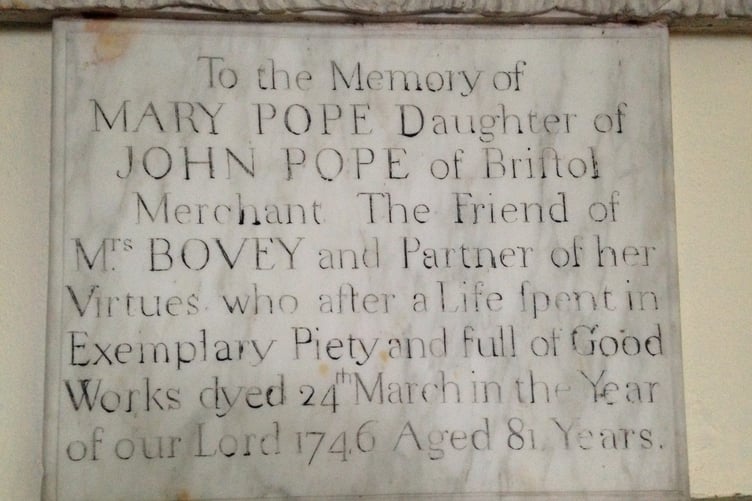 To the Memory of
MARY POPE Daughter of
JOHN POPE of Briſtol
Merchant The Friend of
Mrs BOVEY and Partner of her
Virtues who after a Life ſpent in
Exemplary Piety and full of Good
Works dyed 24th March in the Year
of our Lord 1746 Aged 81 Years.